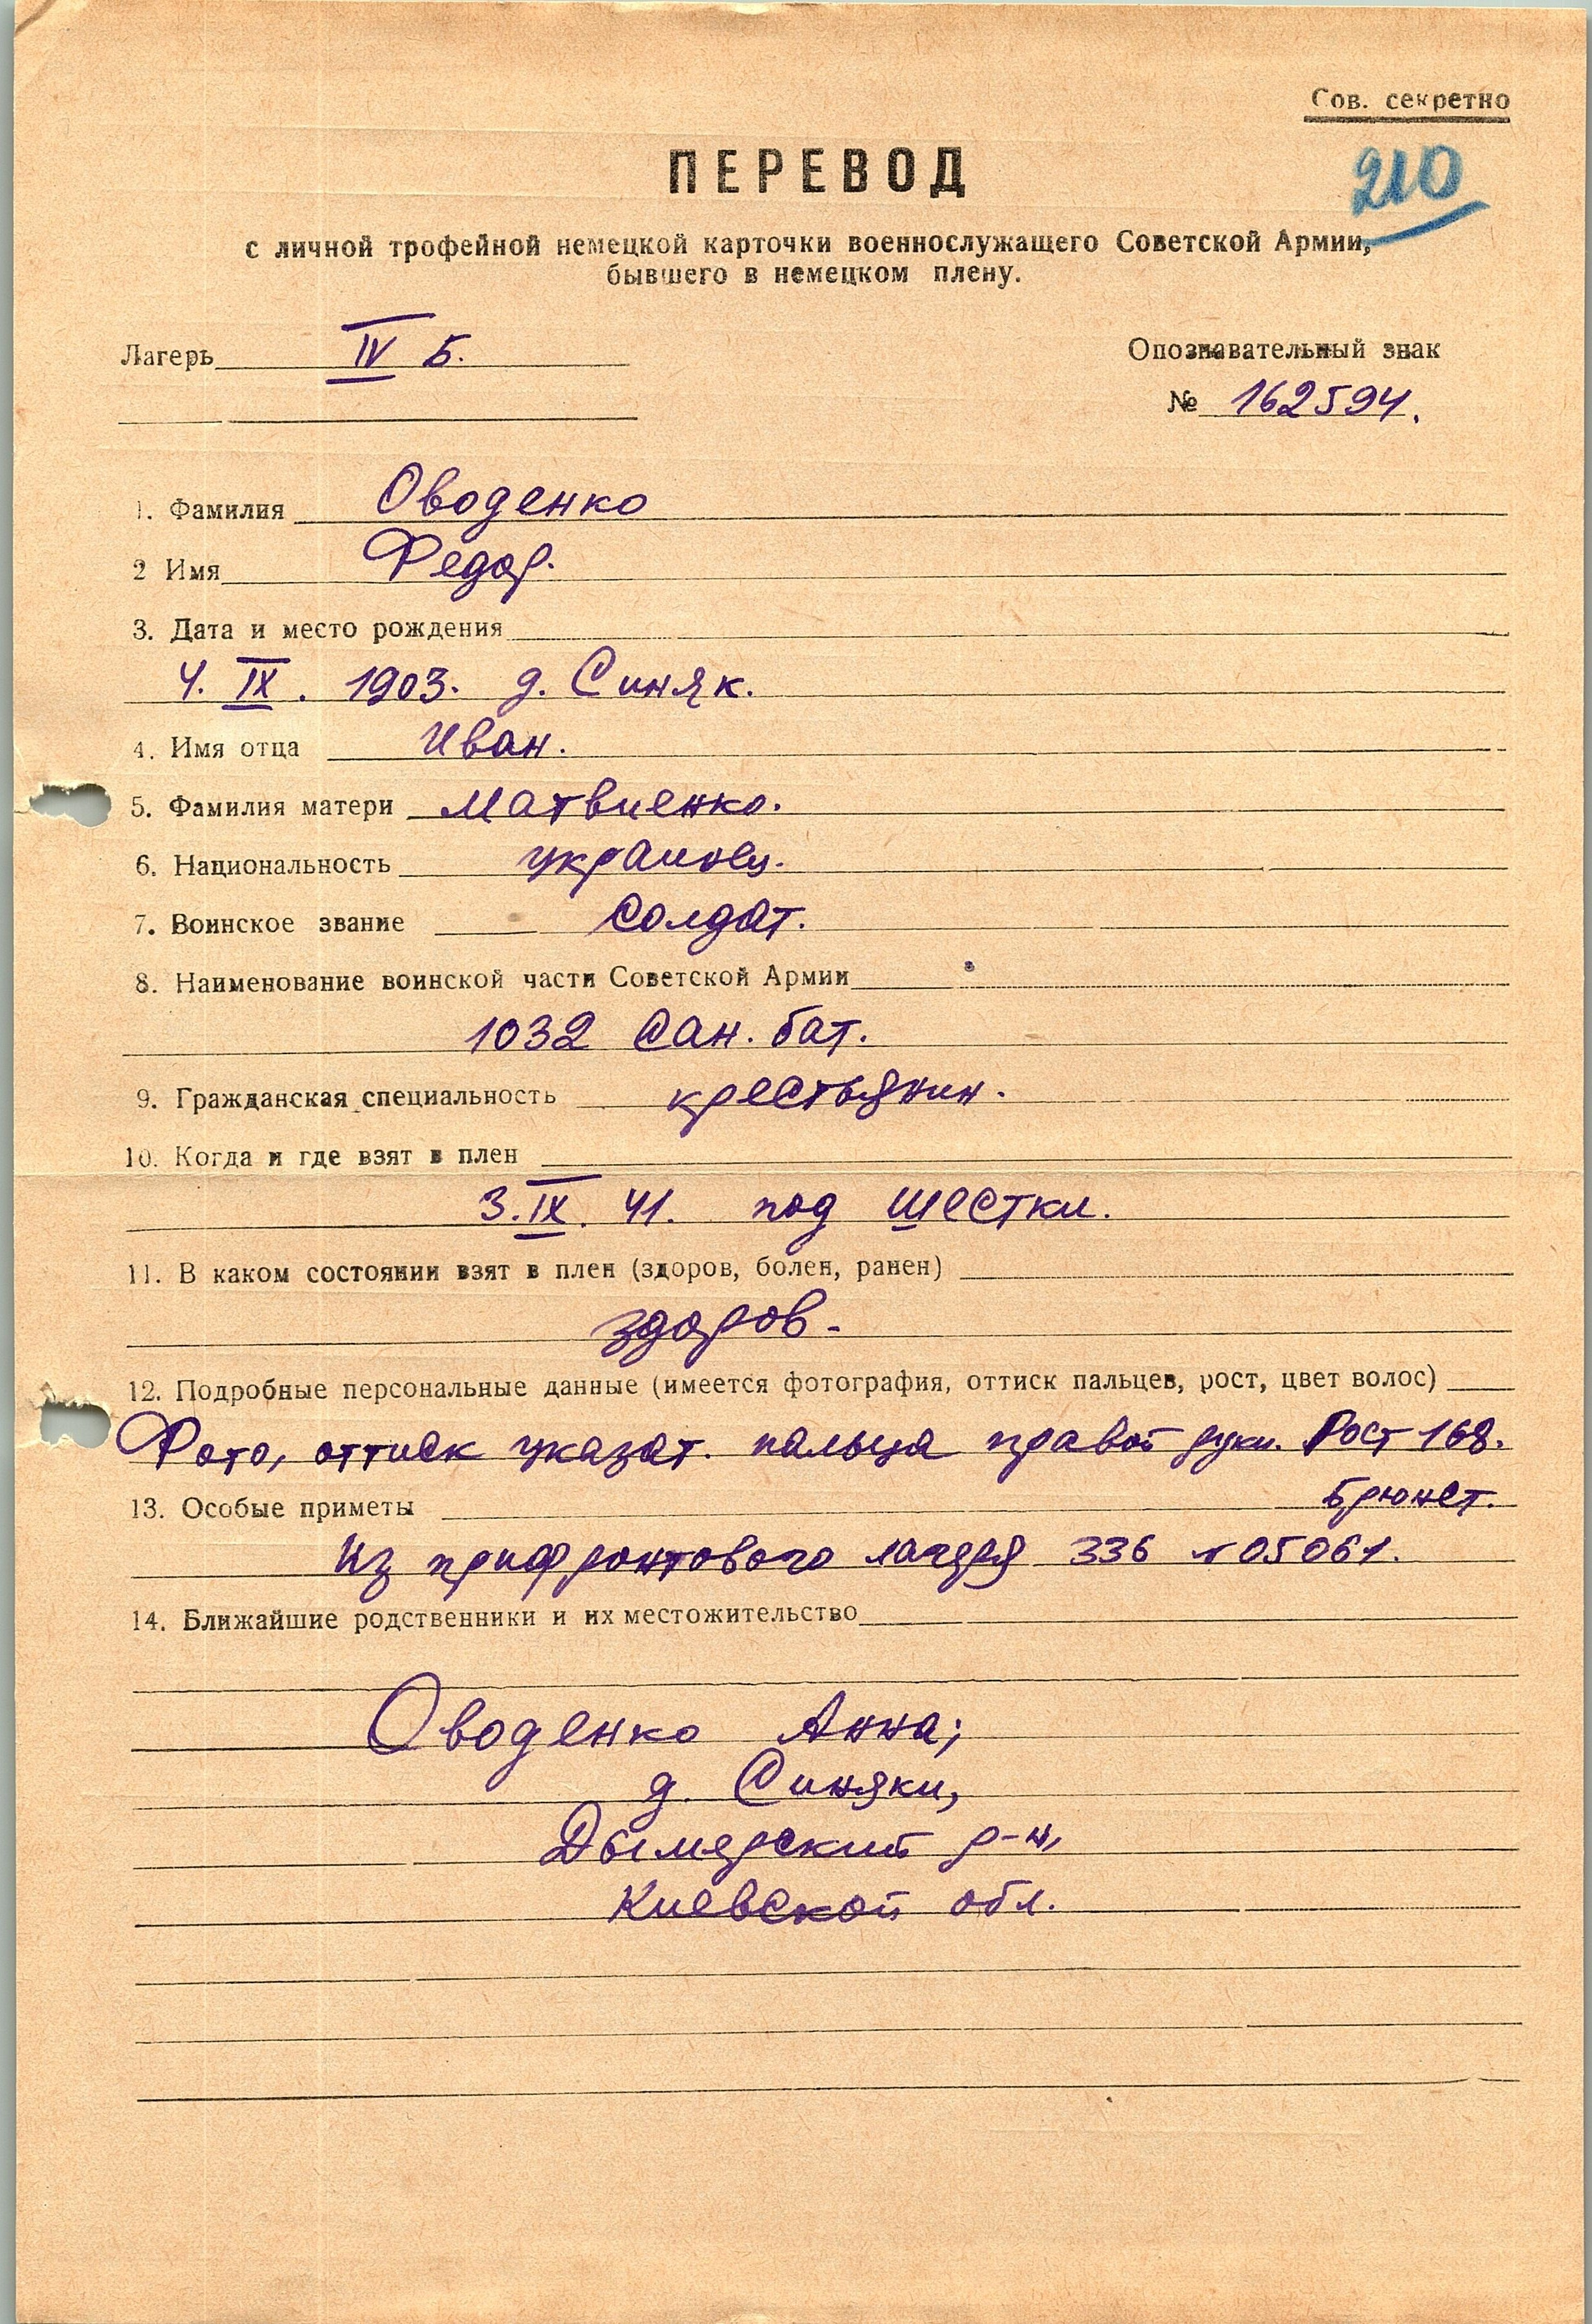 Сов. секретно
210
ПЕРЕВОД
с личной трофейной немецкой карточки военнослужащего Советской Армии,
бывшего в немецком плену.
Лагерь IV Б.
Опознавательный знак
№ 162594.
1. Фамилия Оводенко
2 Имя Федор.
3. Дата и место рождения
4. IX. 1903. д. Синяк.
4. Имя отца Иван.
5. Фамилия матери Матвиенко.
6. Национальность украинец.
7. Воинское звание солдат.
8. Наименование воинской части Советской Армии
1032 Сан. бат.
9. Гражданская специальность крестьянин.
10. Когда и где взят в плен
3. IX. 41. под Шестки.
11. В каком состоянии взят в плен (здоров, болен, ранен)
здоров.
12. Подробные персональные данные (имеется фотография, оттиск пальцев, рост, цвет волос)
Фото, оттиск указат. пальца правой руки. Рост 168.
Брюнет.
13. Особые приметы
Из прифронтового лагеря 336 №05061.
14. Ближайшие родственники и их местожительство
Оводенко Анна;
д. Синяки,
Дымерский р-н,
Киевской обл.